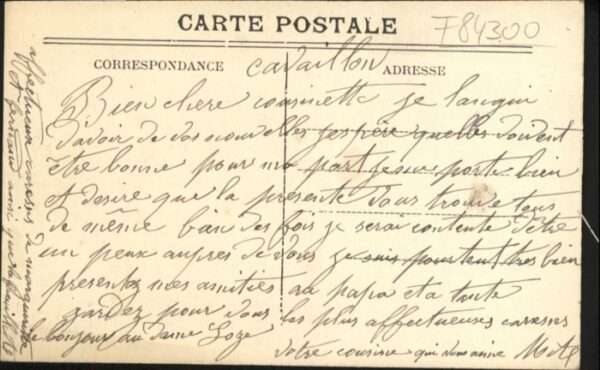 CARTE POSTALE
F84300
CORRESPONDANCE
cavaillon
ADRESSE
Bien chere cousinette je langui
d'avoir de vos nouvelles j'espère quelles doivent
être bonne pour ma part je me porte bien
et desire que la présente vous trouve tous
de même bien des fois je serai contente d'être
un peux aupres de vous je suis pourtent tres bien
presentez mes amitiés au papa et a tante
gardez pour vous les plus affectueuses caresses
le bonjour au dame Loze
votre cousine qui vous aime
affectueux caresses a marguerite
et fernand ainsi que